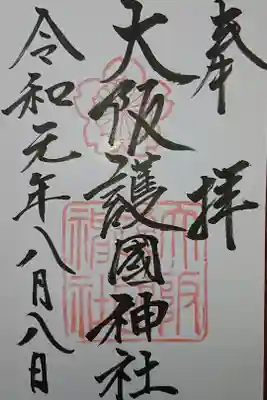 奉拝
大阪護國神社
令和元年八月八日